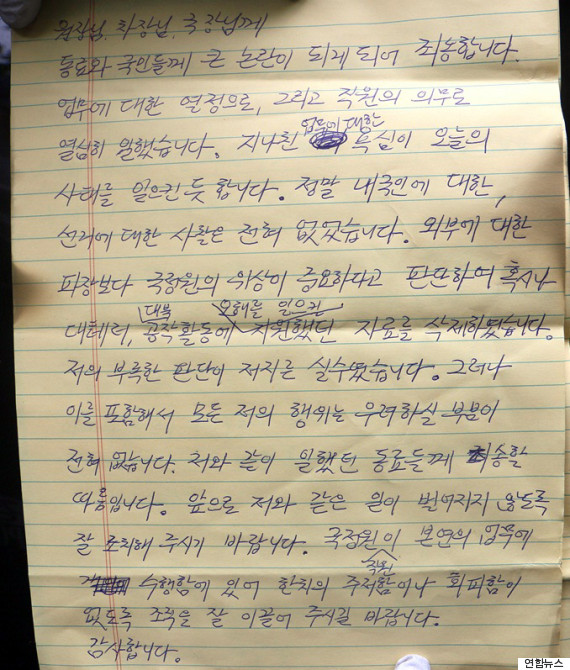 원장님, 차장님, 국장님께
동료와 국민들께 큰 논란이 되게 되어 죄송합니다.
업무에 대한 열정으로, 그리고 직원의 의무로
열심히 일했습니다. 지나친 업무에 대한 욕심이 오늘의
사태를 일으킨 듯 합니다. 정말 내국인에 대한,
선거에 대한 사찰은 전혀 없었습니다. 외부에 대한
파장보다 국정원의 위상이 중요하다고 판단하여 혹시나
대테러, 대북 공작활동에 오해를 일으킨 지원했던 자료를 삭제하였습니다.
저의 부족한 판단이 저지른 실수였습니다. 그러나
이를 포함해서 모든 저의 행위는 우려하실 부분이
전혀 없습니다. 저와 같이 일했던 동료들께 죄송할
따름입니다. 앞으로 저와 같은 일이 벌어지지 않도록
잘 조치해 주시기 바랍니다. 국정원 직원이 본연의 업무에
수행함에 있어 한치의 주저함이나 회피함이
없도록 조직을 잘 이끌어 주시길 바랍니다.
감사합니다.
연합뉴스